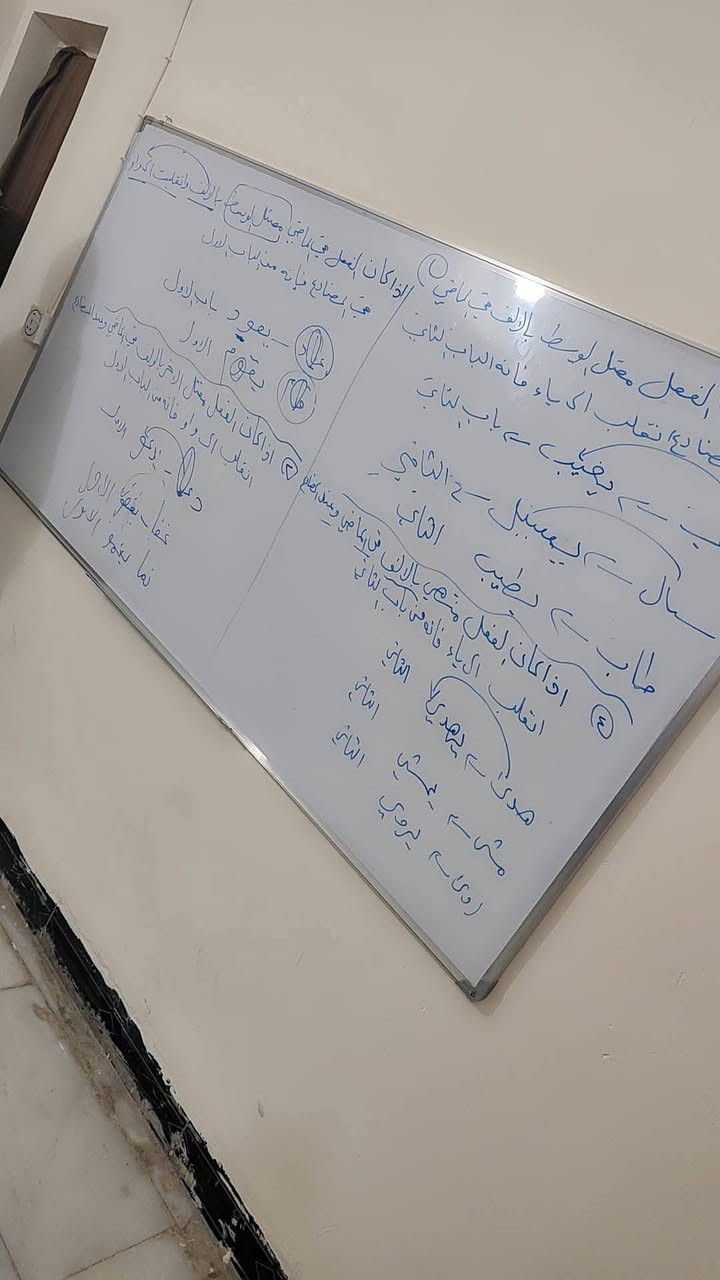 الفعل معتل الوسط بالالف في الماضي
انقلب الى ياء فانه الباب الثاني
يخيب ← باب الثاني
سال ← يسيل ← الثاني
طاب ← يطيب الثاني
٤ اذا كان الفعل منتهي بالالف في الماضي وعند المضارع
انقلب الى ياء فانه من باب الثاني
هدى ← يهدي الثاني
مشى ← يمشي الثاني
روى ← يروي الثاني
اذا كان الفعل في الماضي معتل الوسط بالالف وانقلبت الى واو
في المضارع فانه من الباب الاول
عاد - يعود باب الاول
قام يقوم الاول
٣ اذا كان الفعل معتل الاخر بالالف في الماضي وعند المضارع
انقلب الى واو فانه من الباب الاول
دعا - يدعو الاول
غفا يغفو الاول
نما ينمو الاول